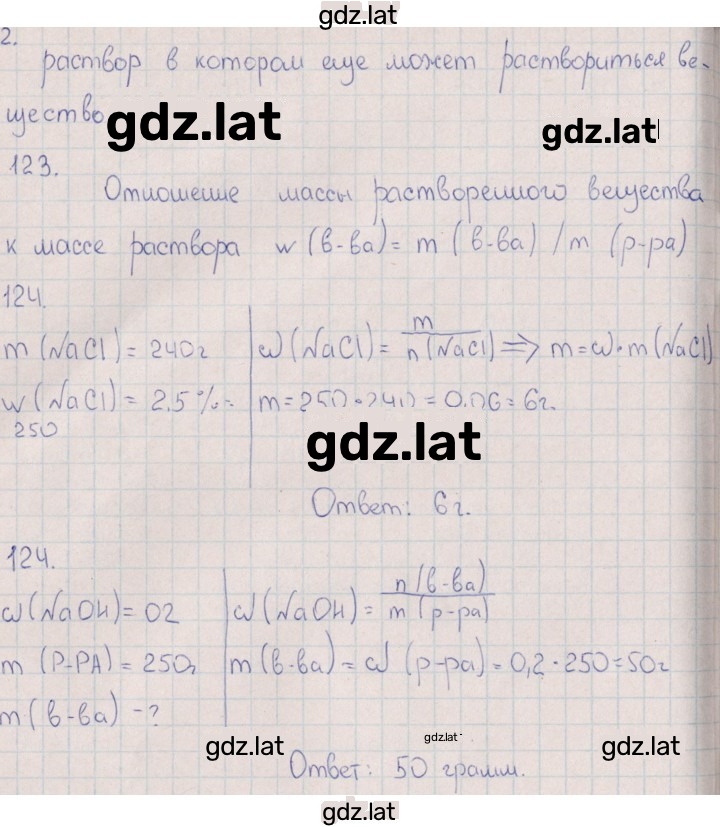 gdz.lat
2.
раствор в котором еще может раствориться ве-
щество
gdz.lat gdz.lat
123.
Отношение массы растворенного вещества
к массе раствора w (в-ва) = m (в-ва) / m (р-ра)
124.
m (NaCl) = 240г
ω (NaCl) = m / n (NaCl) => m = ω · m (NaCl)
w (NaCl) = 2.5 % =
250
m = 250 · 240 = 0.06 = 6г.
gdz.lat
Ответ: 6г.
124.
ω (NaOH) = 02
ω (NaOH) = n (в-ва) / m (р-ра)
m (Р-РА) = 250г
m (в-ва) = ω (р-ра) = 0,2 · 250 = 50г
m (в-ва) - ?
gdz.lat gdz.lat gdz.lat
Ответ: 50 грамм.
gdz.lat